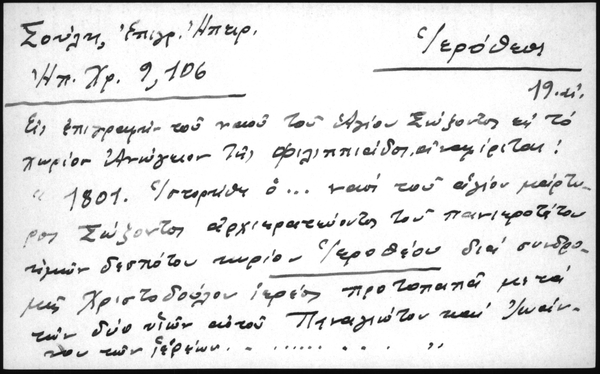 Σούλη, Ἐπιγρ. Ἠπειρ.
Ἠπ. Χρ. 9, 106
Ἱερόθεος
19. αἰ.
Εἰς ἐπιγραφὴν τοῦ ναοῦ τοῦ Ἁγίου Σώζοντος εἰς τὸ
χωρίον Ἀνώγειον τῆς Φιλιππιάδος, ἀναφέρεται:
" 1801. Ἱστορήθη ὁ ... ναὸς τοῦ ἁγίου μάρτυ-
ρος Σώζοντος ἀρχιερατεύοντος τοῦ πανιεροτάτου
ἡμῶν δεσπότου κυρίου Ἱεροθέου διὰ συνδρο-
μῆς Χριστοδούλου ἱερέος πρωτοπαπᾶ μετὰ
τῶν δύο υἱῶν αὐτοῦ Παναγιώτου καὶ Ἰωάν-
νου τῶν ἱερέων. . ...... . . . "